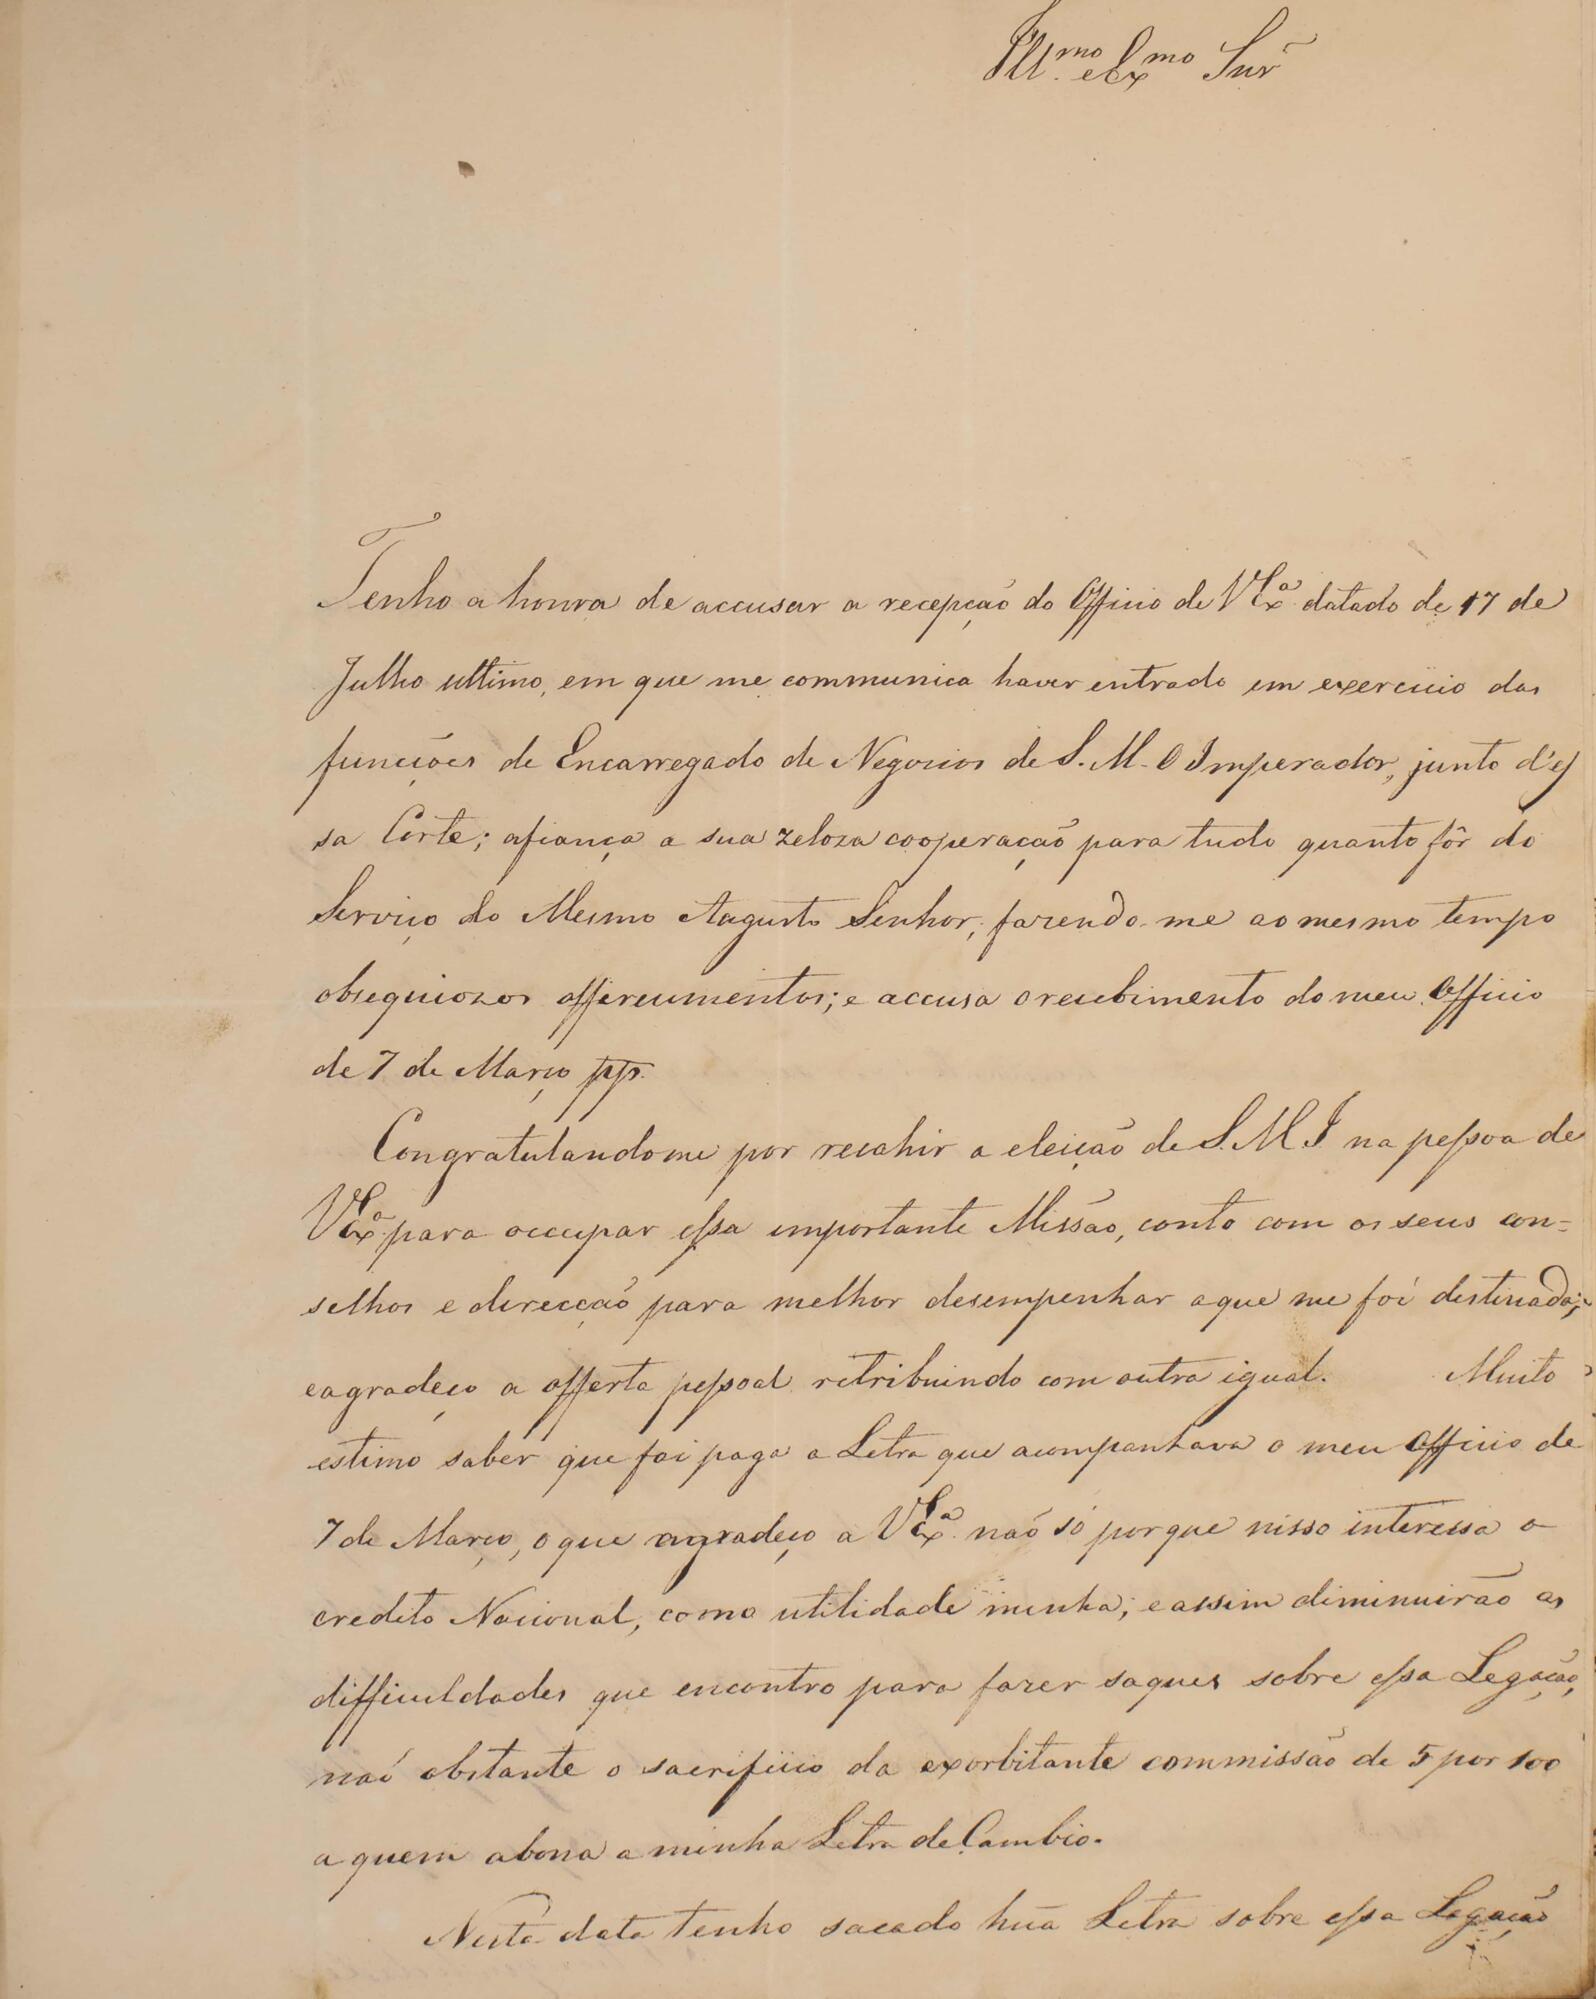 Ill.mo e Ex.mo Snr
Tenho a honra de accusar a recepção do Officio de V Ex.ª datado de 17 de
Julho ultimo, em que me communica haver entrado em exercicio das
funcções de Encarregado de Negocios de S. M. O Imperador, junto d'es
sa Corte; afiança a sua zeloza cooperação para tudo quanto fôr do
Serviço do Mesmo Augusto Senhor; fazendo-me ao mesmo tempo
obsequiozos offerecimentos; e accusa o recebimento do meu Officio
de 7 de Março pp.
Congratulandome por recahir a eleição de S. M I na pessoa de
V Ex.ª para occupar essa importante Missão, conto com os seus con=
selhos e direcção para melhor desempenhar aque me foi destinada;
eagradeço a offerta pessoal retribuindo com outra igual. Muito
estimo saber que foi paga a Letra que acompanhava o meu Officio de
7 de Março, o que agradeço a V Ex.ª não só porque nisso interessa o
credito Nacional, como utilidade minha; e assim diminuirão as
difficuldades que encontro para fazer saques sobre essa Legação,
não obstante o sacrificio da exorbitante commissão de 5 por 100
a quem abona a minha Letra de Cambio.
Nesta data tenho sacado hũa Letra sobre essa Legação